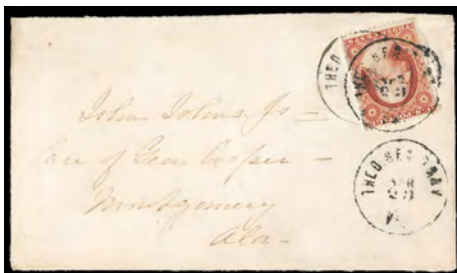 THEO SEMINARY
APR
VA
John Johns Jr
Care of Gen Cooper
Montgomery
Ala